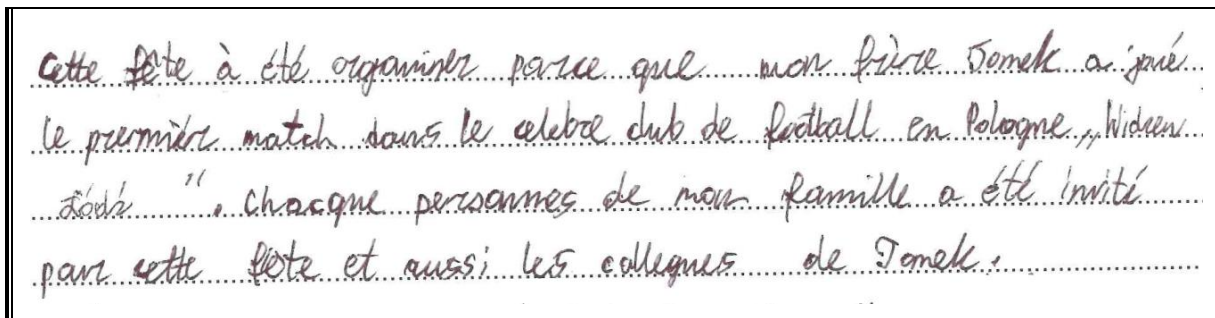 Cette fête à été organiser parce que mon frière Tomek a joué
le premmièr match dans le celebre club de football en Pologne „Widzew
Łódź ”. Chacque personnes de mon famille a été invité
par cette fête et aussi les collegues de Tomek.